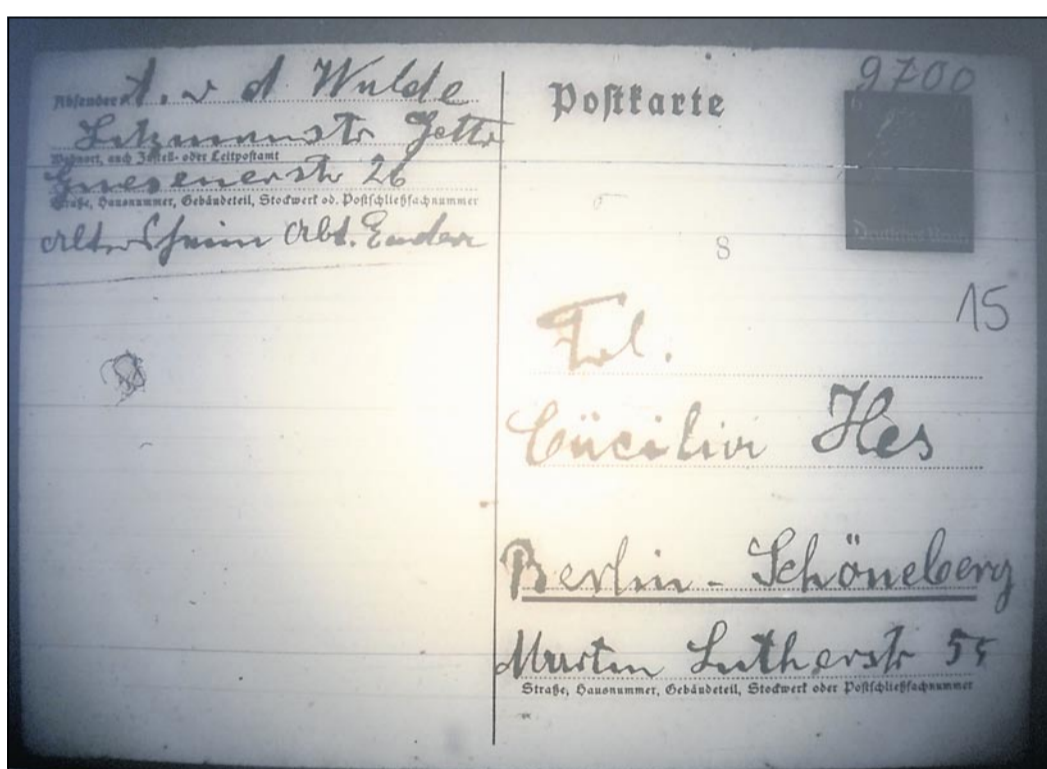 Absender: A. v d Walde
Litzmannstr Getto
Wohnort, auch Zustell- oder Leitpostamt
Gnesenerstr 26
Straße, Hausnummer, Gebäudeteil, Stockwerf od. Postschließfachnummer
Altersheim Abt. Emden
Postkarte
9700
6 6
Deutsches Reich
8
15
Frl.
Cäcilie Hes
Berlin - Schöneberg
Martin Lutherstr 55
Straße, Hausnummer, Gebäudeteil, Stockwerk oder Postschließfachnummer